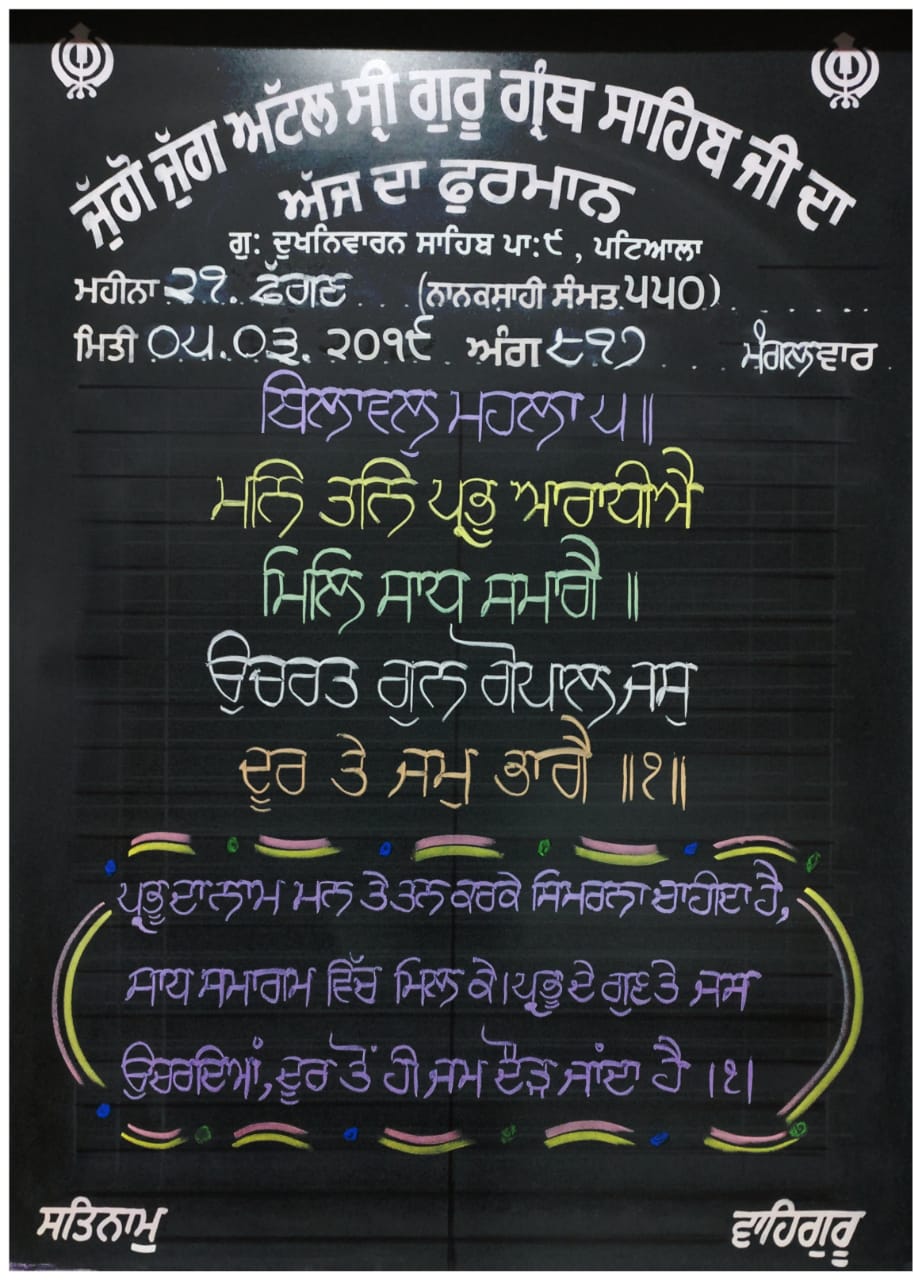 ਜੁੱਗੋ ਜੁੱਗ ਅਟੱਲ ਸ੍ਰੀ ਗੁਰੂ ਗ੍ਰੰਥ ਸਾਹਿਬ ਜੀ ਦਾ
ਅੱਜ ਦਾ ਫੁਰਮਾਨ
ਗੁ: ਦੁਖਨਿਵਾਰਨ ਸਾਹਿਬ ਪਾ:੯ , ਪਟਿਆਲਾ
ਮਹੀਨਾ ੨੧. ਫੱਗਣ (ਨਾਨਕਸ਼ਾਹੀ ਸੰਮਤ ੫੫੦)
ਮਿਤੀ ੦੫.੦੩.੨੦੧੯ ਅੰਗ ੮੧੭ ਮੰਗਲਵਾਰ
ਬਿਲਾਵਲੁ ਮਹਲਾ ੫॥
ਮਨਿ ਤਨਿ ਪ੍ਰਭੁ ਆਰਾਧੀਐ
ਮਿਲਿ ਸਾਧ ਸਮਾਗੈ ॥
ਉਚਰਤ ਗੁਨ ਗੋਪਾਲ ਜਸੁ
ਦੂਰ ਤੇ ਜਮੁ ਭਾਗੈ ॥੧॥
ਪ੍ਰਭੂ ਦਾ ਨਾਮ ਮਨ ਤੇ ਤਨ ਕਰਕੇ ਸਿਮਰਨਾ ਚਾਹੀਦਾ ਹੈ,
ਸਾਧ ਸਮਾਗਮ ਵਿੱਚ ਮਿਲ ਕੇ। ਪ੍ਰਭੂ ਦੇ ਗੁਣ ਤੇ ਜਸ
ਉਚਰਦਿਆਂ, ਦੂਰ ਤੋਂ ਹੀ ਜਮ ਦੌੜ ਜਾਂਦਾ ਹੈ ।੧।
ਸਤਿਨਾਮੁ ਵਾਹਿਗੁਰੂ